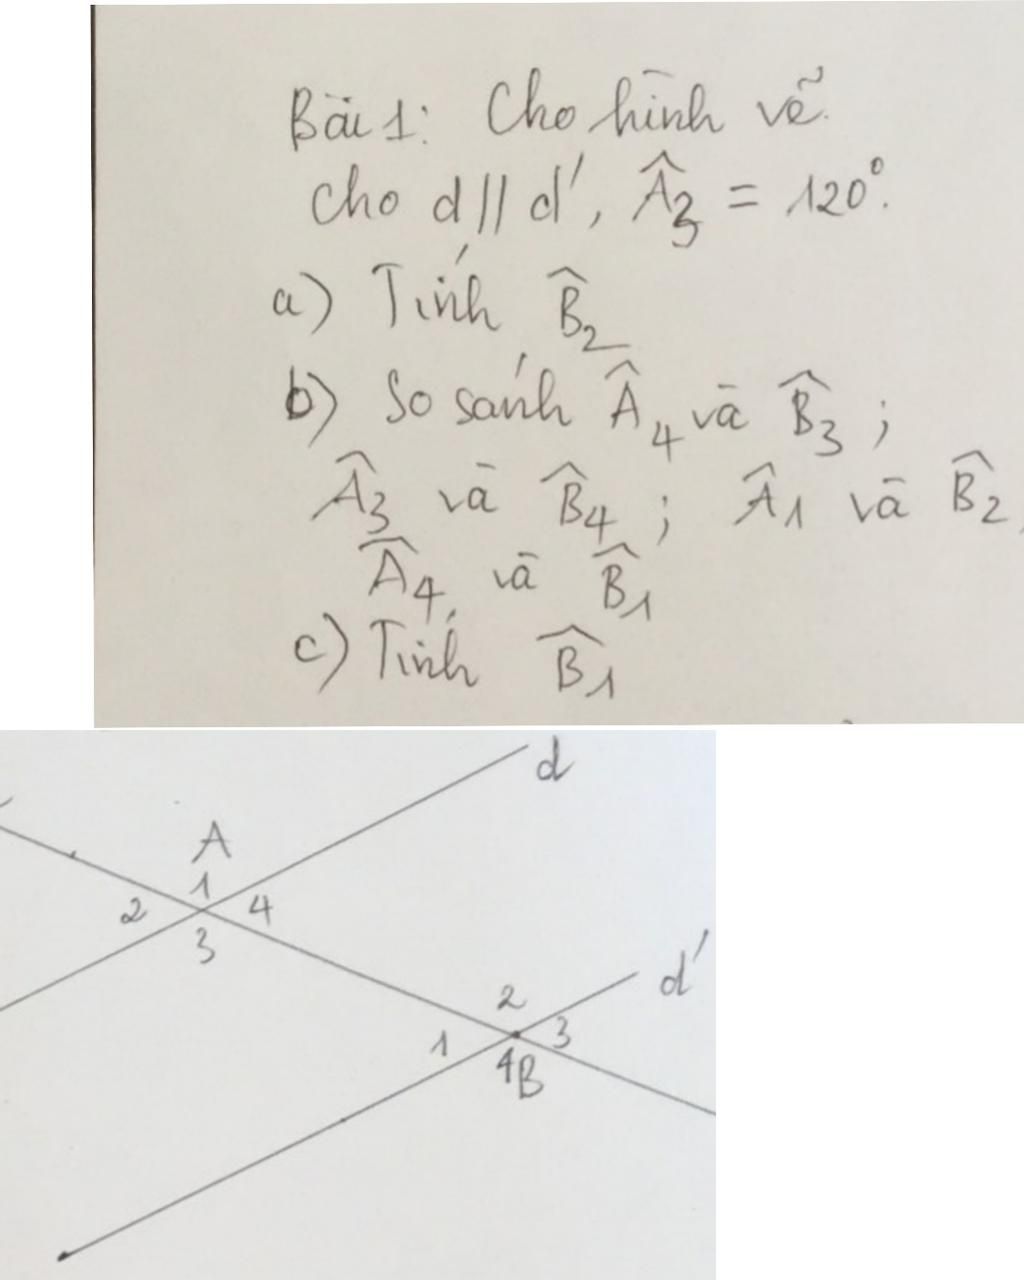 Bài 1: Cho hình vẽ.
cho d // d', Â3 = 120°.
a) Tính B̂2
b) So sánh Â4 và B̂3 ;
Â3 và B̂4 ; Â1 và B̂2,
Â4 và B̂1
c) Tính B̂1
d
A
1
2 4
3
d'
2
1 3
4B